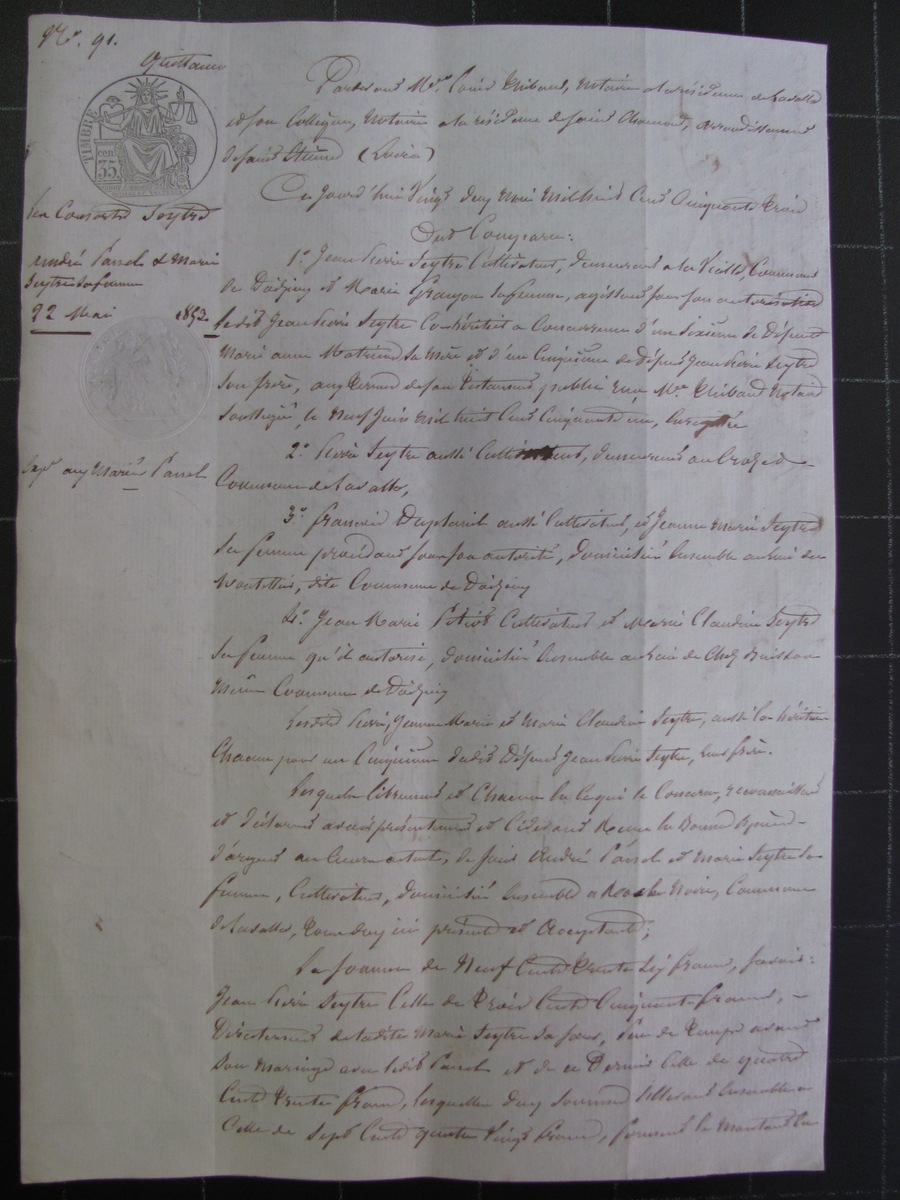 N.° 91.
Quittance
TIMBRE
cen. 35
Les Consorts Seytre
André Passel & Marie
Seytre sa femme
22 Mai 1853
Exp. aux Mariés Passel
Pardevant Me Louis Thibaud, Notaire à la résidence de Lavalla
et son Collègue, Notaire à la résidence de Saint Chamond, arrondissement
de Saint Etienne (Loire)
Ce jourd'hui Vingt deux Mai Mil huit Cent Cinquante Trois
Ont Comparu:
1.° Jean Pierre Seytre Cultivateur, demeurant à la Commune
de Doizieu et Marie Granjon sa femme, agissant sous son autorisation
ledit Jean Pierre Seytre Co-héritier à Concurrence d'un sixième de Défunte
Marie anne Matricon sa Mère et d'un Cinquième de Défunt Jean Pierre Seytre
son frère, aux termes de son Testament public reçu Me Thibaud Notaire
soussigné, le Neuf Juin Mil huit Cent Cinquante un, Enregistré
2.° Pierre Seytre aussi Cultivateur, demeurant au Crozet
Commune de Lavalla,
3.° françois aussi Cultivateur, et Jeanne Marie Seytre
sa femme procédant sous son autorité, domiciliés Ensemble au lieu de
dite Commune de Doizieu
4.° Jean Marie Cultivateur et Marie Claudine Seytre
sa femme qu'il autorise, domiciliés Ensemble au lieu de Chez
Même Commune de Doizieu
Lesdits Pierre, Jeanne Marie et Marie Claudine Seytre, aussi Co-héritiers
Chacun pour un Cinquième dudit Défunt Jean Pierre Seytre, leur frère.
Lesquels librement et Chacun En Ce qui le Concerne, reconnaissent
et déclarent avoir présentement et Ci-devant Reçu En Bonnes Espèces
d'argent au Cours actuel, de Sieur André Passel et Marie Seytre sa
femme, Cultivateurs, domiciliés Ensemble à Roche Noire, Commune
de Lavalla, Tous deux ici présents et Acceptants;
La Somme de Neuf Cents Trente Six francs, savoir:
Jean Pierre Seytre Celle de Trois Cents Cinquante francs,
Directement de ladite Marie Seytre sa sœur, peu de Temps avant
son Mariage avec ledit Passel et de ce Dernier Celle de quatre
Cents Trente francs, lesquelles deux sommes s'élevant Ensemble à
Celle de Sept Cents quatre Vingt francs, forment le Montant En